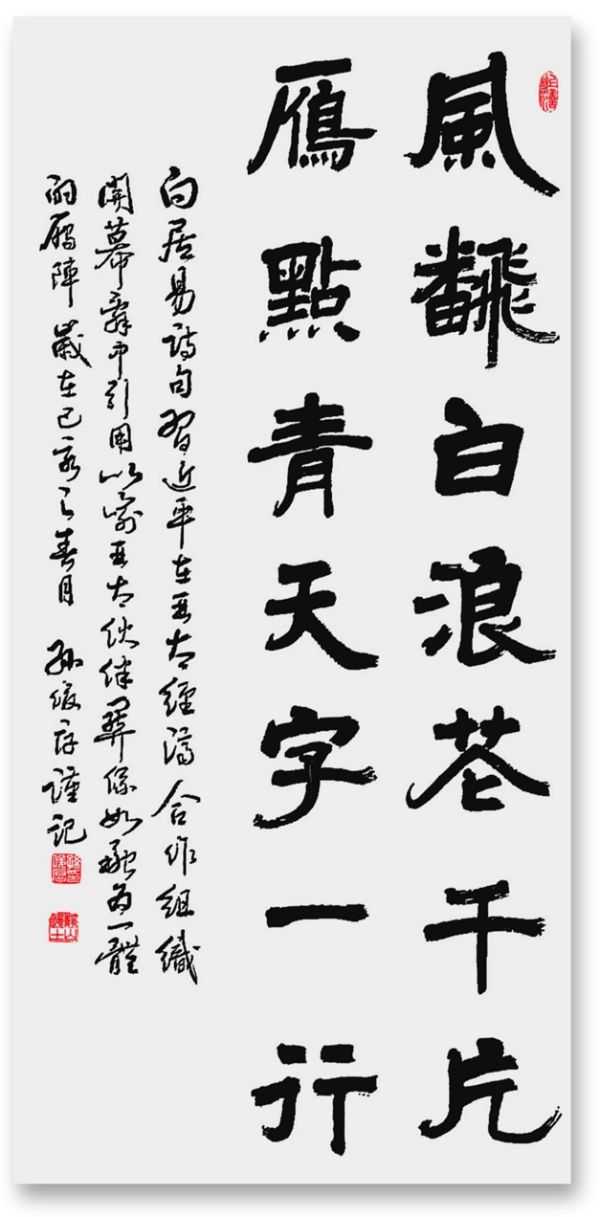 風飜白浪花千片
鴈點青天字一行
白居易詩句習近平在亞太經濟合作組織
開幕辭中引用以喻亞太伙伴關係如融為一體
的鴈陣 歲在己亥之春月 孫 存謹記